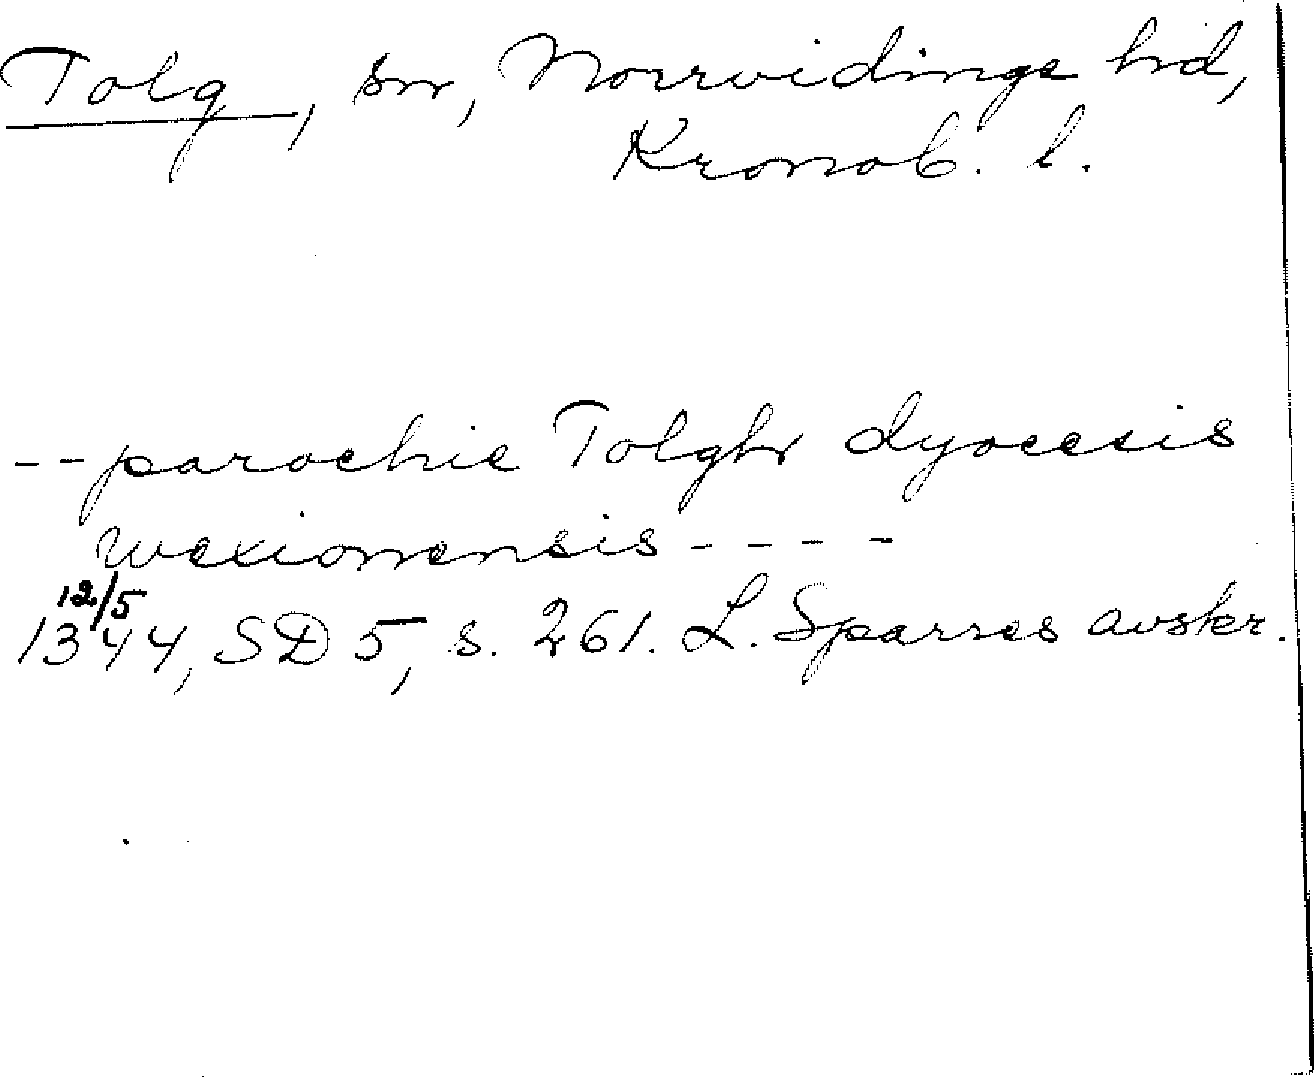 Tolg, sn, Norrvidinge hd,
Kronob. l.
-- parochie Tolghr dyocesis
wexionensis ----
12/5
1344, SD 5, s. 261. L. Sparres avskr.